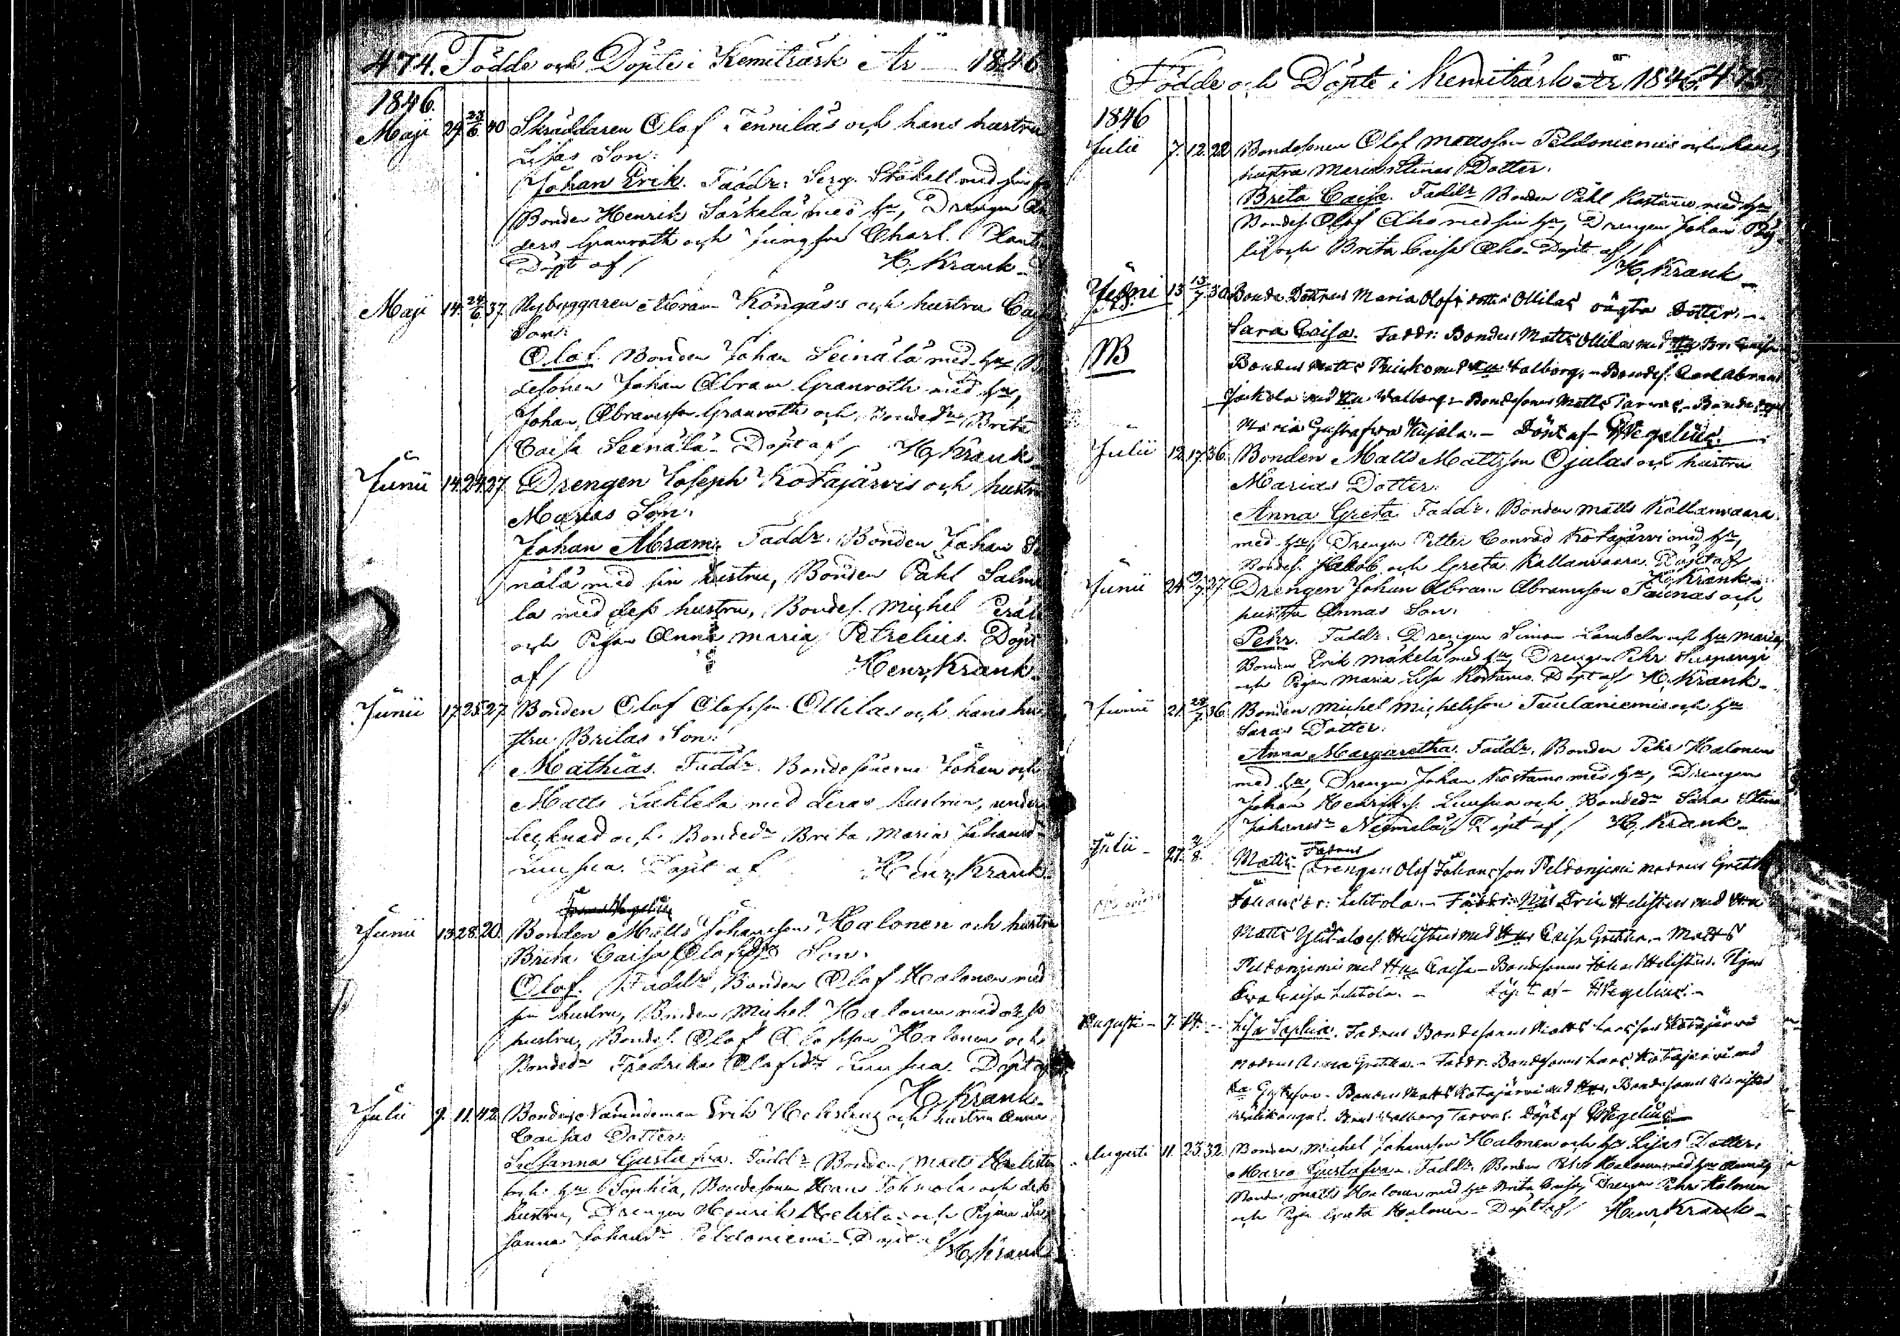 474. Födde och Döpte i Kemiträsk År 1846
1846.
Maji 24 24/6 40 Skräddaren Olof Tennilas och hans hustru
Lisas Son:
Johan Erik. Faddr: Serg. Ståkell med
Bonden Henrik Särkelä med hu, Drengen An
ders Granroth och jungfru Charl.
Döpt af H. Krank
Maji 14 24/6 37. Nybyggaren Abram Kongäss och hustru
Son:
Olof. Bonden Johan Seinälä med hu
desonen Johan Abram Granroth med hu,
Johan Abramsson Granroth och Bondedr Brita
Caisa Seinälä Döpt af H. Krank
Junii 14 24 27 Drengen Joseph Kotajärvis och hustru
Marias Son:
Johan Abram. Faddr. Bonden Johan
nälä med sin hustru, Bonden Påhl Salm
la med dess hustru, Bondes. Michel Perä
och Pigan Anna Maria Petrelius. Döpt
af Henr. Krank
Junii 17 25 27 Bonden Olof Olofsson Ollilas och hans hu
stru Britas Son:
Mathias. Faddr. Bondesönerne Johan och
Matts Lahtela med deras hustrur, under
tecknad och Bondedr Brita Maria Johansdr
Luusua. Döpt af Henr. Krank
Junii 13 28 20 Bonden Matts Johansson Halonen och hustru
Brita Caisa Olofsdrs Son:
Olof. Faddr, Bonden Olof Halonen med
sin hustru, Bonden Michel Halonen med dess
hustru, Bondes. Olof Olofsson Halonen och
Bondedr Fredrika Olofsdr Luusua. Döpt af
H. Krank
Julii 9. 11. 42. Bonden Nämndeman Erik Helistens och hustru Anna
Caisas Dotter:
Susanna Gustafva. Faddr Bonden Matts Helisten
och hu Sophia, Bondesonen Hans Tohmola och dess
hustru, Drengen Henrik Helisten och Pigan Su
sanna Johansdr Peldoniemi. Döpt af
H. Krank
Födde och Döpte i Kemiträsk År 1846. 475.
1846
Julii 7. 12. 22 Bondesonen Olof Mattsson Peldoniemis och hans
hustru Maria Stinas Dotter.
Brita Caisa. Faddr Bonden Påhl Kostamo med hu
Bondes. Olof Aho med sin hu, Drengen Johan
och Brita Caisa Aho. Döpt af
H. Krank
Juni 13 13/7 30 Bonde Dottren Maria Olofs dotter Ollilas oägta Dotter
Sara Caisa. Faddr: Bonden Matts Ollilas med Hu Br: Caisa
NB Bonden Matts med Hu Valborg. Bondes. Carl Abram
Jackola med Hu Walborg. Bondesonen Matts Tarvas. Bonde
Maria Gustafva Kujala. Döpt af Wegelius.
Julii 12 17 36. Bonden Matts Mattsson Ojalas och hustru
Marias Dotter:
Anna Greta. Faddr. Bonden Matts Kallanvaara
med hu, Drengen Petter Conrad Kotajärvi med hu,
Bondes. Jakob och Greta Kallanvaara. Döpt af
H. Krank
Junii 24 /7 27 Drengen Johan Abram Abramsson Saunas och
hustru Annas Son:
Pehr. Faddr. Drengen Simon Lambela och hu Maria,
Bonden Erik Mäkelä med hu, Drengen Pehr
och Pigan Maria Lisa Kostamo. Döpt af H. Krank
Junii 21. /7 36 Bonden Michel Michelsson Tuulaniemis och hu
Saras Dotter:
Anna Margaretha. Faddr. Bonden Pehr Halonen
med hu, Drengen Johan Kostamo med hu, Drengen
Johan Henriks. Luusua och Bondedr Sara Stina
Johansdr Niemelä. Döpt af H. Krank
Julii 27. 2/8 Matts. Fadren
Drengen Olof Johansson Peldonjemi modren Greta
Johansdr: Lehtola. Faddr: Erik Helisten med Hu
Matts Helisten med Hu Caisa Gretha. Matts
Peldonjemi med Hu Caisa. Bondesonen Johan Helisten. Pigan
Eva Caisa Lehtola. Döpt af Wegelius.
Augusti 7. 14. Lisa Sophia. Fadren Bondesonen Matts Larsson Kotajärvi
modren Anna Gretha. Faddr: Bondesonen Lars Kotajärvi med
Hu Gustafva. Bonden Matts Kotajärvi med Hu, Bondesonen
Walborg Tarvas. Döpt af Wegelius
Augusti 11. 23. 32. Bonden Michel Johansson Halonen och hu Lisas Dotter.
Maria Gustafva. Faddr. Bonden Pehr Halonen med hu
Bonden Matts Halonen med hu Brita Caisa, Drengen Pehr Halonen
och Pigan Greta Halonen. Döpt af Henr. Krank